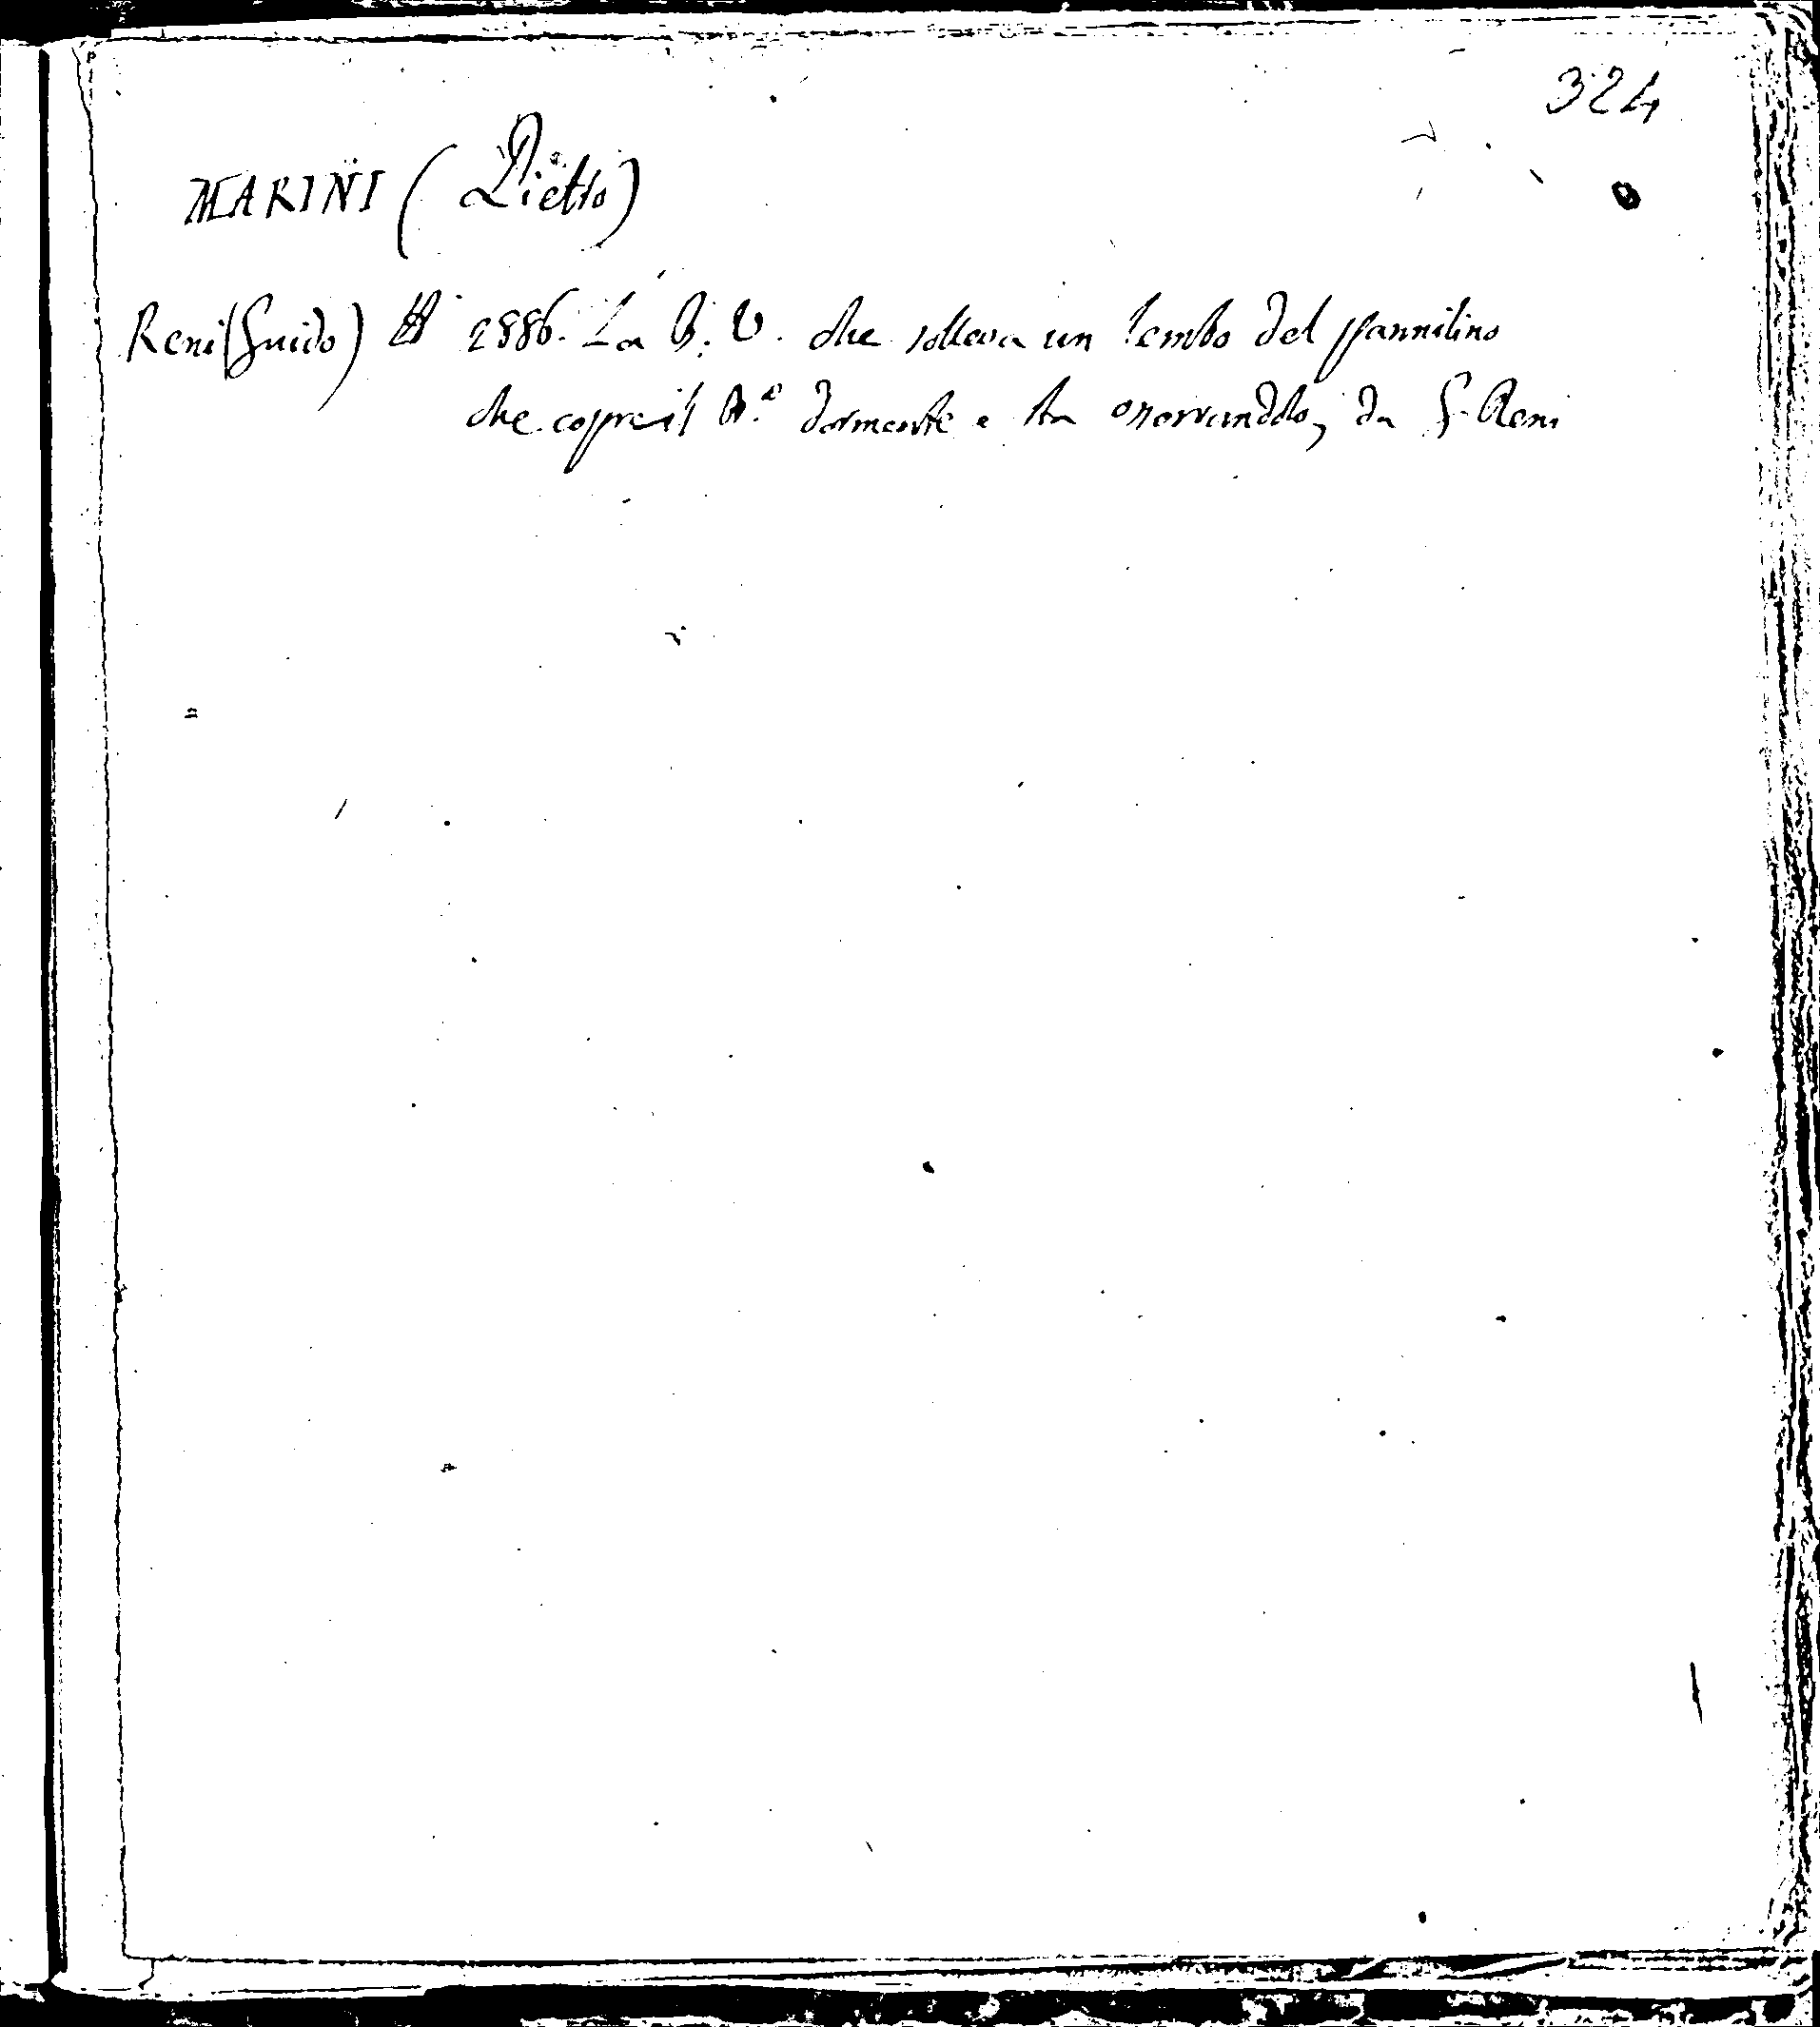 324
MARINI (Pietro)
Reni (Guido) 2886. La B. V. che solleva un lembo del pannilino
che copre il B.º dormente e sta osservandolo, da G. Reni